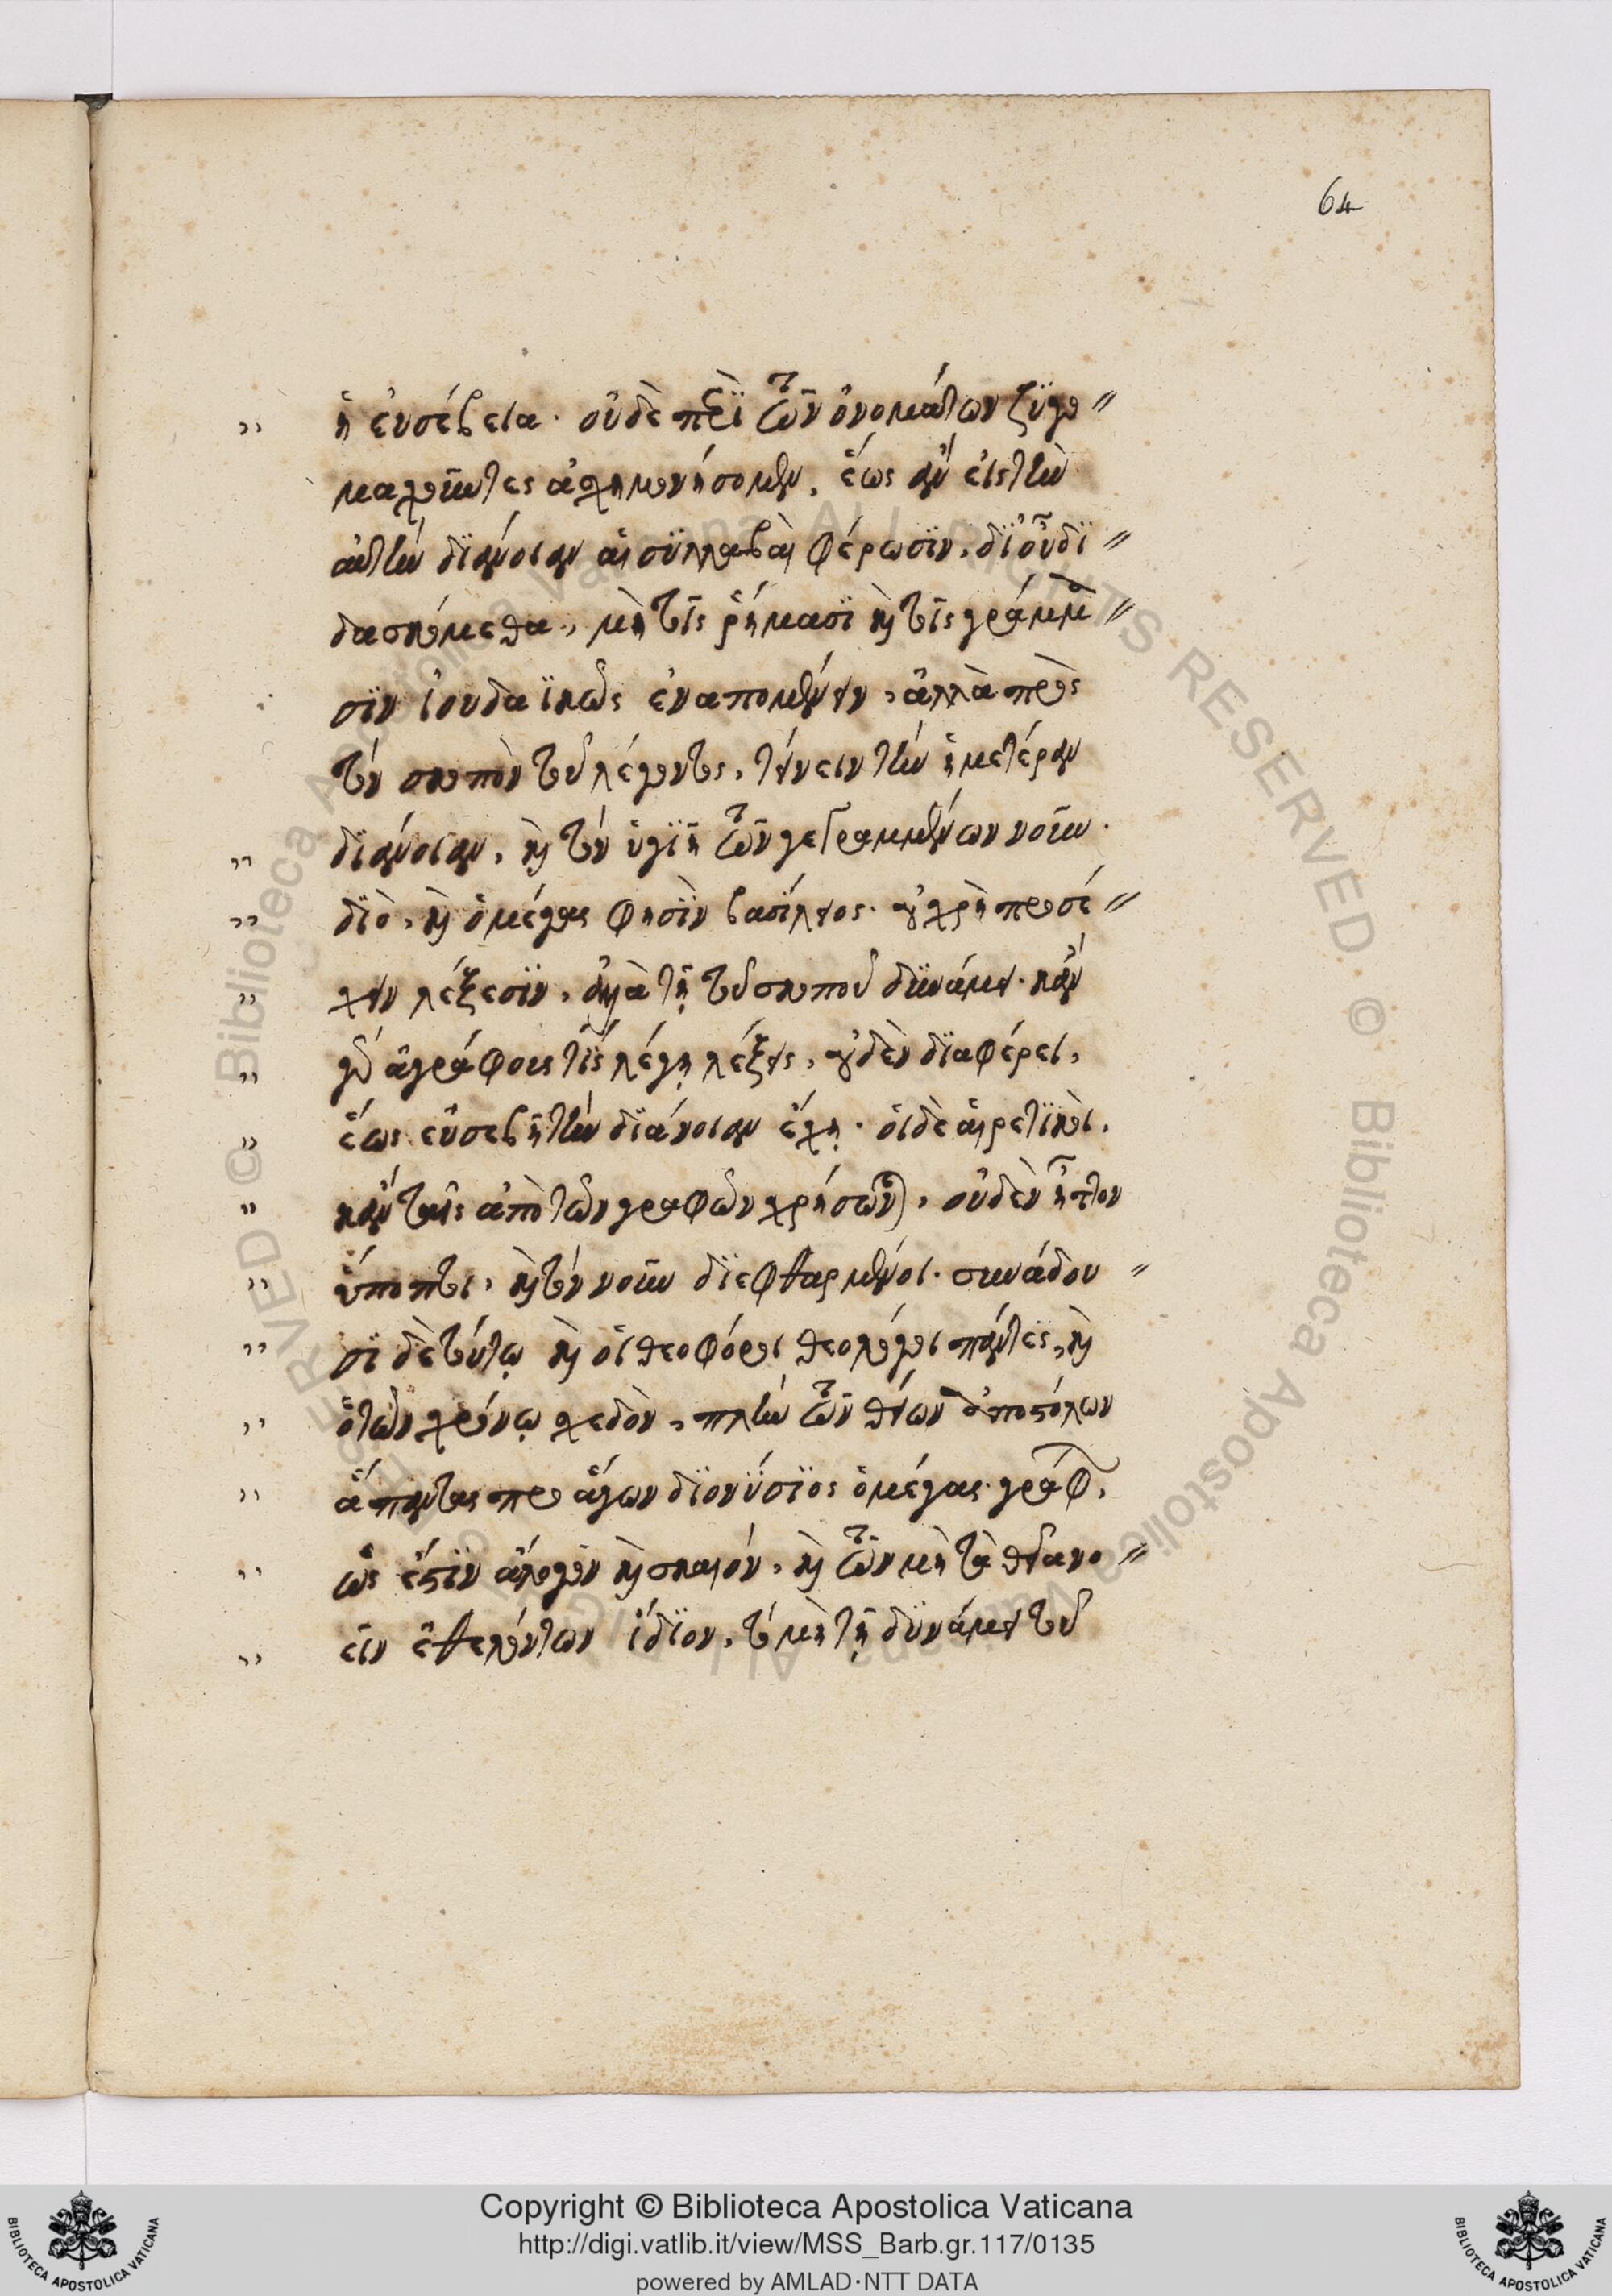 64
ἡ ἐυσέβεια· οὐδὲ περὶ τῶν ὀνομάτων ζϋγο
μαχοῦντες ἀσχημονήσομεν, ἕως ἂν εἰς τὴν
αὐτὴν διάνοιαν αἱ συλλαβαὶ φέρωσιν, δι' οὗ δι
δασκόμεθα, μὴ τοῖς ῥήμασι καὶ τοῖς γράμμα
σιν ἰουδαϊκῶς ἐναπομένειν, ἀλλὰ πρὸς
τὸν σκοπὸν τοῦ λέγοντος, τείνειν τὴν ἡμετέραν
,, διάνοιαν, καὶ τὸν ὑγιῆ τῶν γεγραμμένων νοῦν.
,, διὸ, καὶ ὁ μέγας φησὶν βασίλειος· οὐ χρὴ προσέ
,, χειν λέξεσιν, ἀλλὰ τῇ τοῦ σκοποῦ δυνάμει· κἂν
,, γὰρ ἀγράφους τὶς λέγῃ λέξεις, οὐδὲν διαφέρει,
,, ἕως εὐσεβῆ τὴν διάνοιαν ἔχῃ· οἱ δὲ αἱρετικοὶ,
,, κἂν ταῖς ἀπὸ τῶν γραφῶν χρήσωνται, οὐδὲν ἧττον
,, ὕποπτοι, καὶ τὸν νοῦν διεφθαρμένοι· συνάδου
,, σι δὲ τούτῳ καὶ οἱ θεοφόροι θεολόγοι πάντες, καὶ
,, ὁ τῶν χρόνῳ σχεδὸν, πλὴν τῶν θείων ἀποστόλων
,, ἅπαντας προάγων διονύσιος ὁ μέγας γράφ,
,, ὡς ἔστιν ἄλογον καὶ σκαιόν, καὶ τῶν μὴ τὰ θεῖα νο
,, εῖν ἐθελόντων ἴδιον, τὸ μὴ τῇ δυνάμει τοῦ
Copyright © Biblioteca Apostolica Vaticana
http://digi.vatlib.it/view/MSS_Barb.gr.117/0135
powered by AMLAD·NTT DATA
BIBLIOTECA APOSTOLICA VATICANA
BIBLIOTECA APOSTOLICA VATICANA